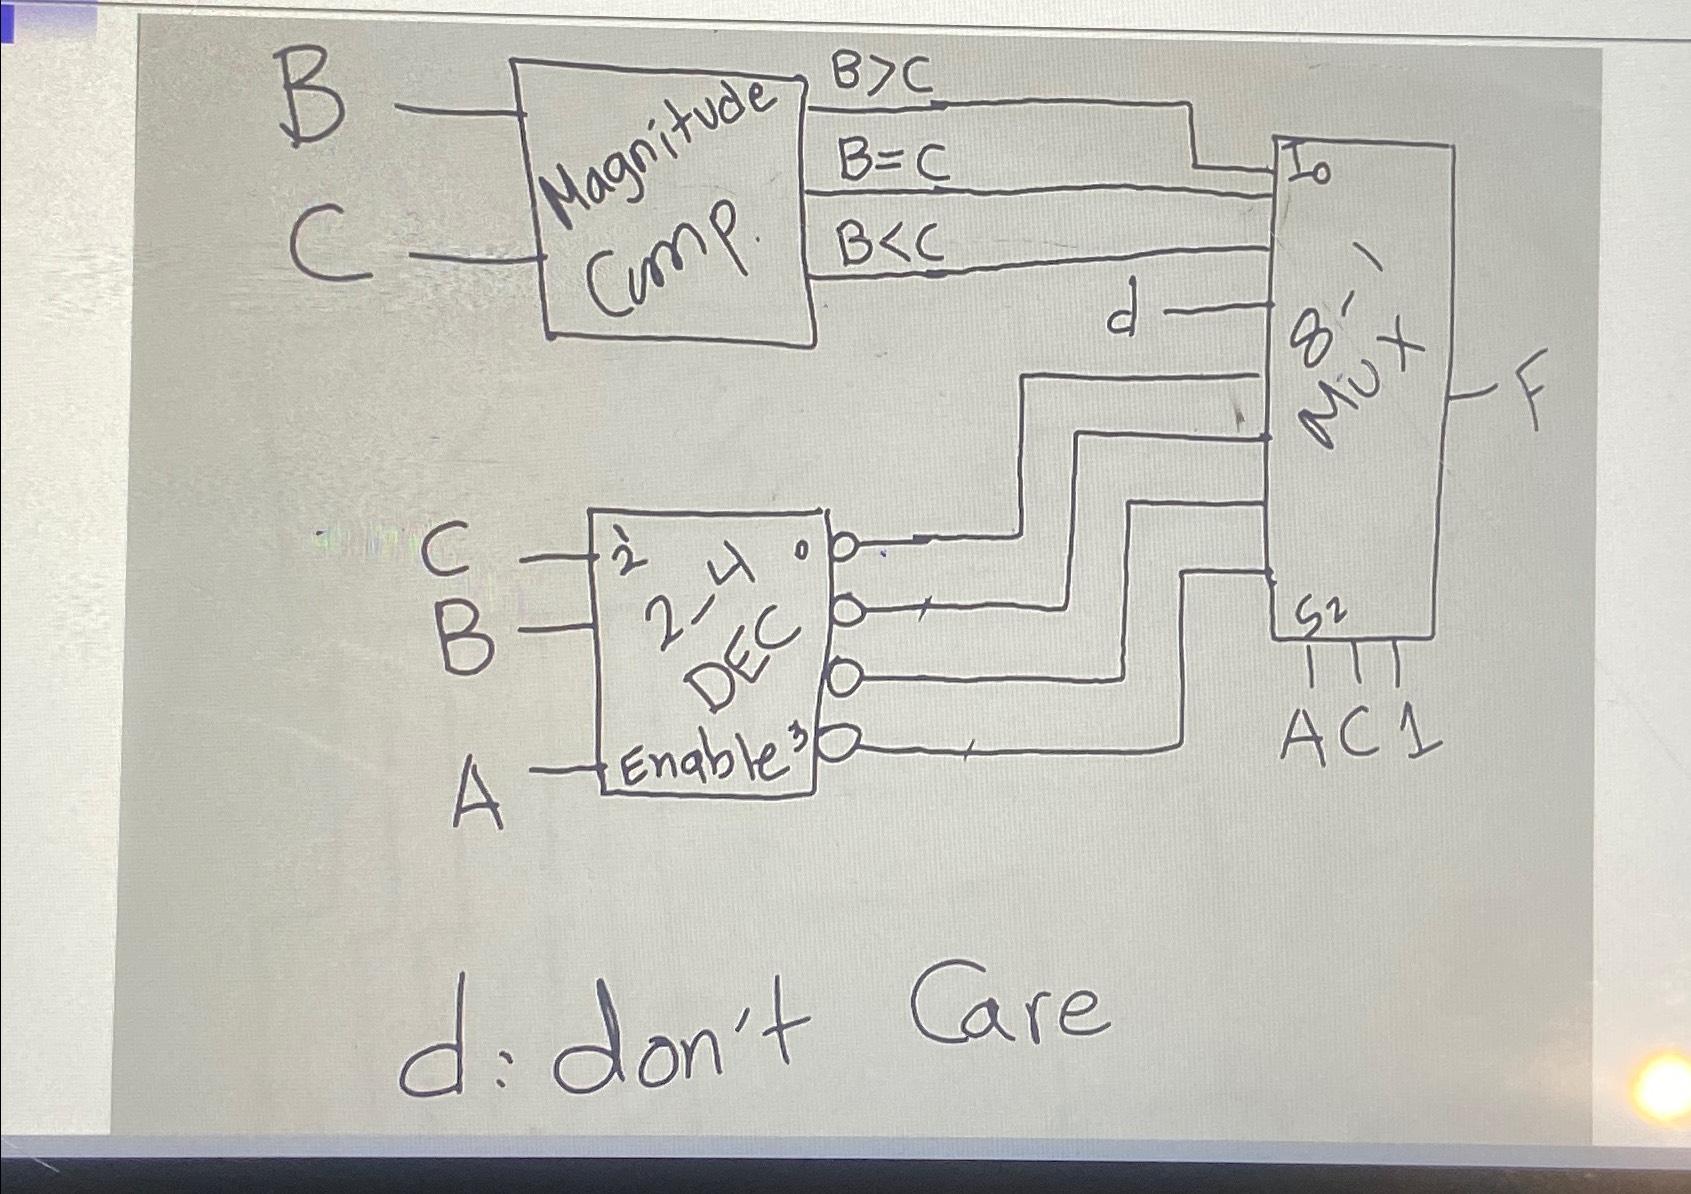 B
C
Magnitude
Comp.
B>C
B=C
B<C
d
I0
8-1
MUX
F
S2
A C 1
C
B
A
2
0
2-4
DEC
Enable 3
d: don't Care